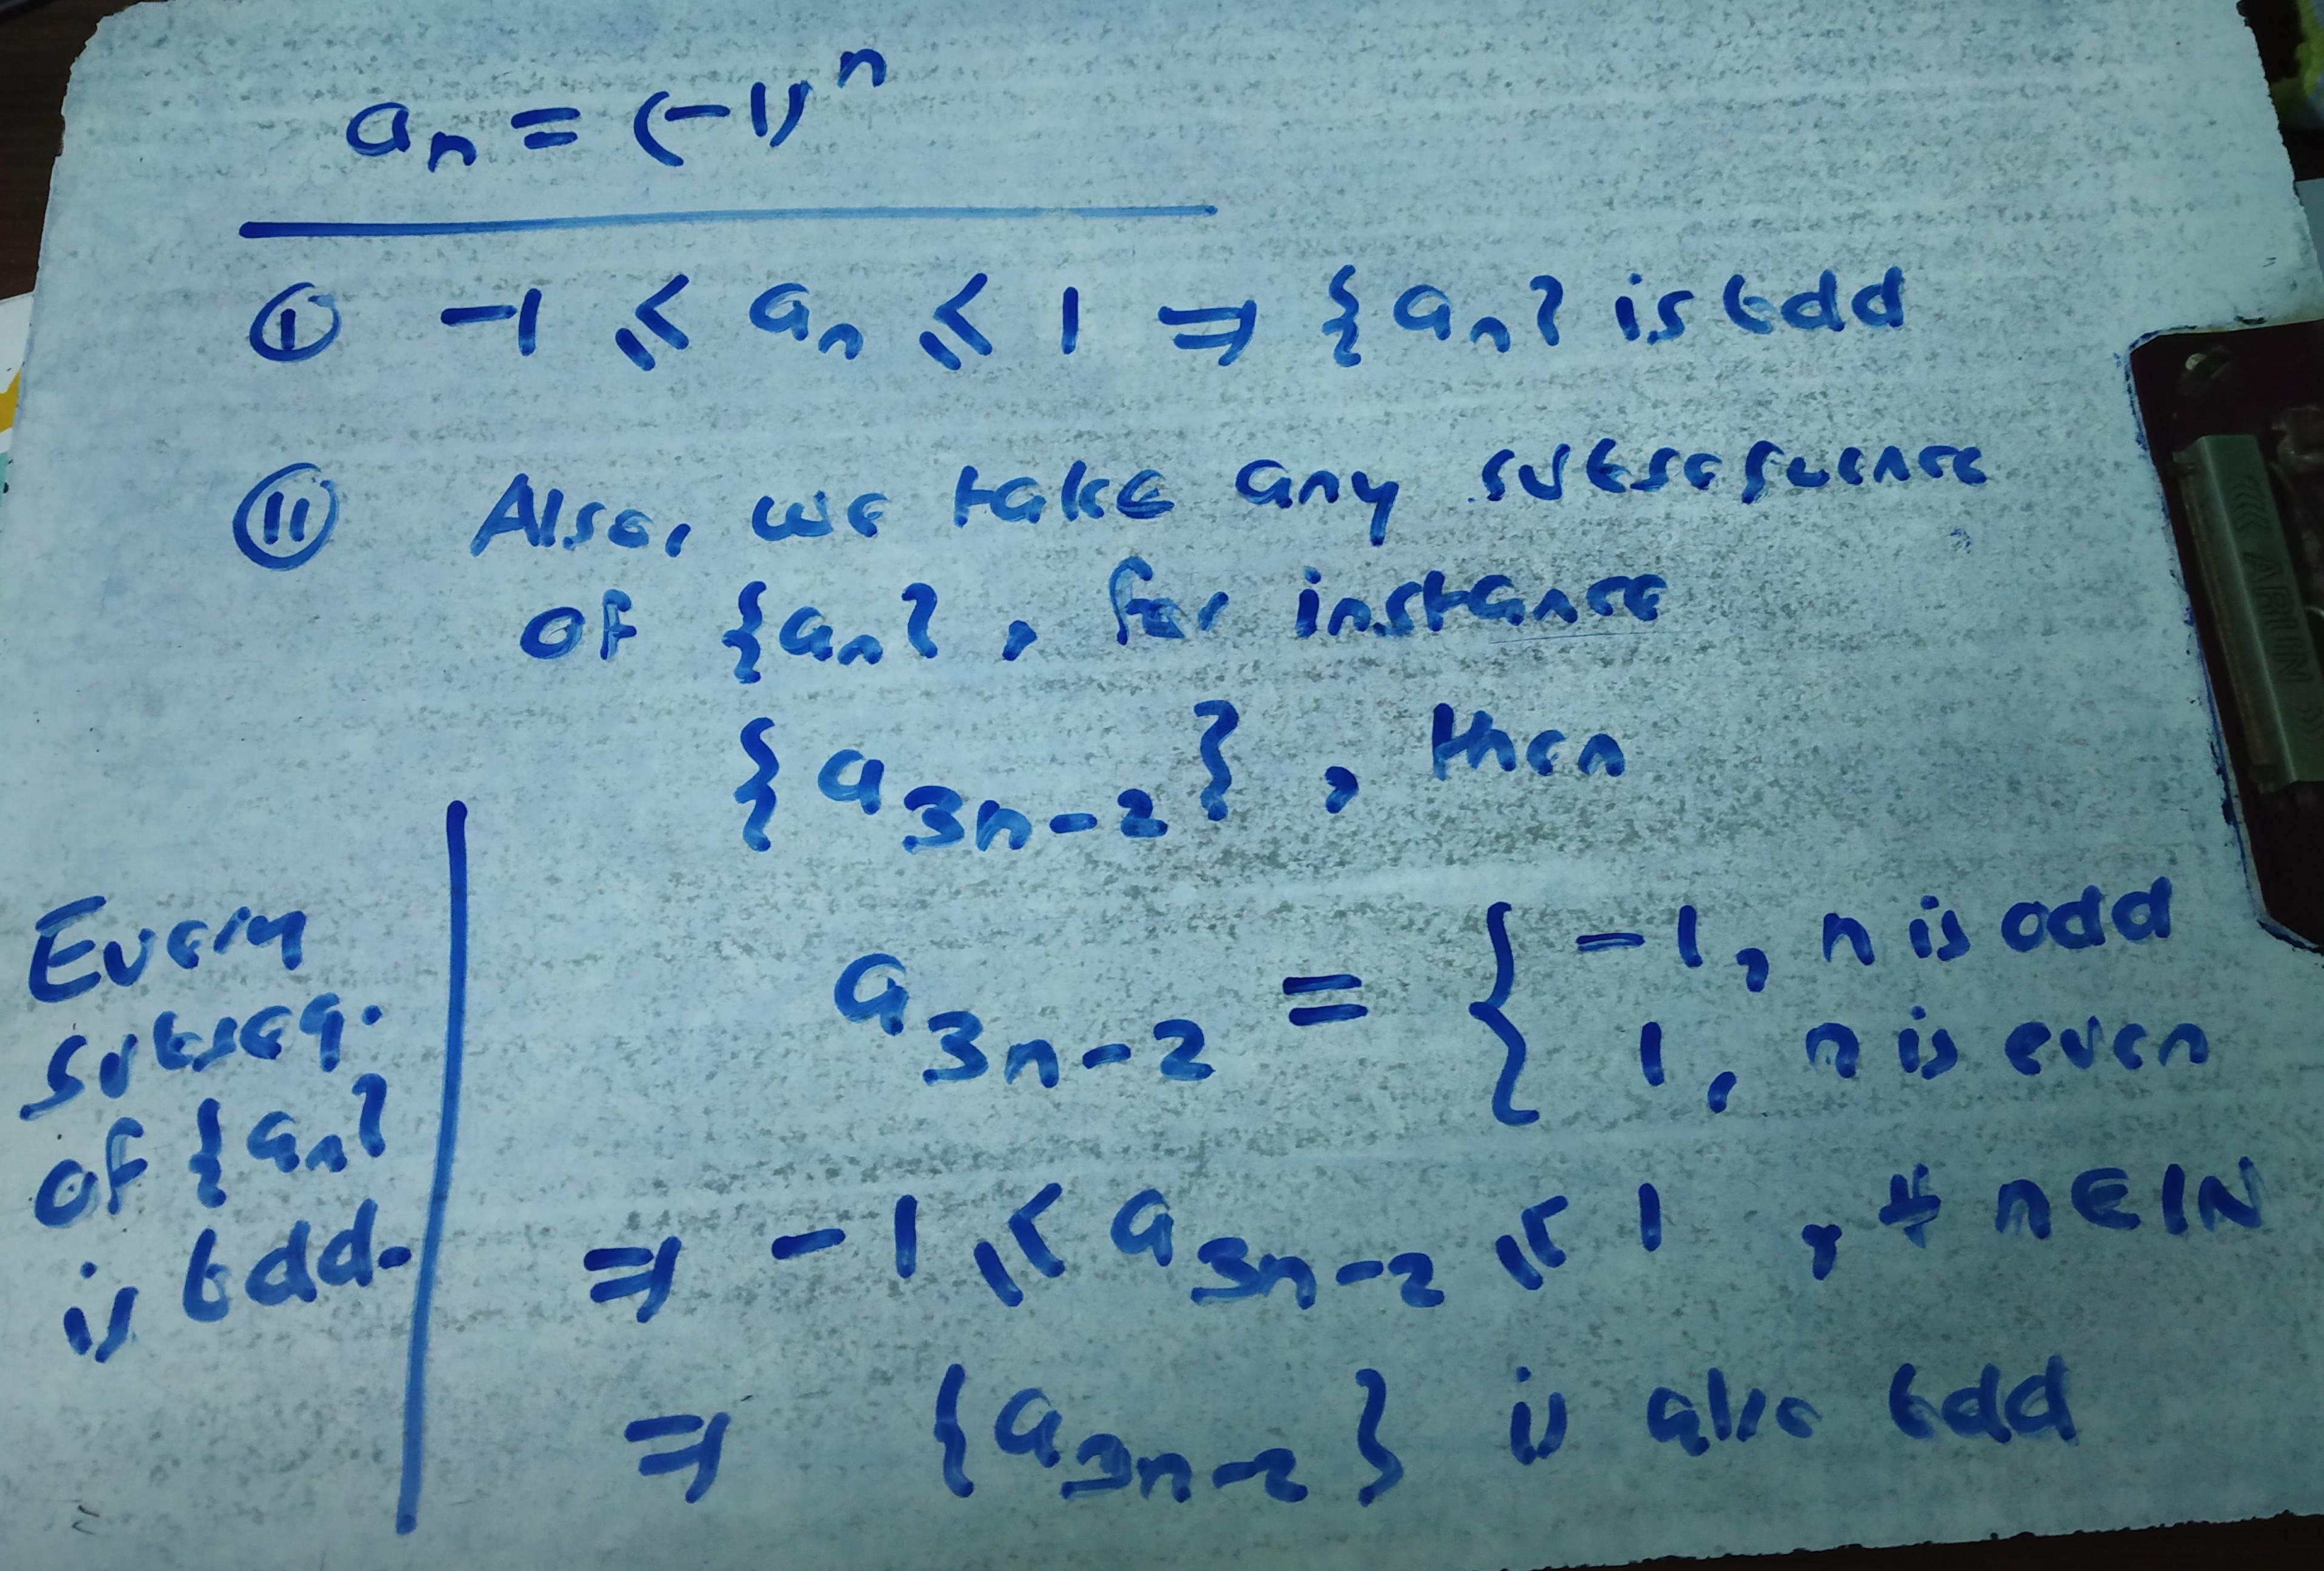 aₙ = (-1)ⁿ
Ⓘ -1 ≤ aₙ ≤ 1 ⇒ {aₙ} is bdd
Ⓘⓘ Also, we take any subsequence
of {aₙ}, for instance
{a₃ₙ₋₂}, then
a₃ₙ₋₂ = { -1, n is odd
1, n is even
⇒ -1 ≤ a₃ₙ₋₂ ≤ 1, ∀ n ∈ ℕ
⇒ {a₃ₙ₋₂} is also bdd
Every
subseq.
of {aₙ}
is bdd.
ARUN